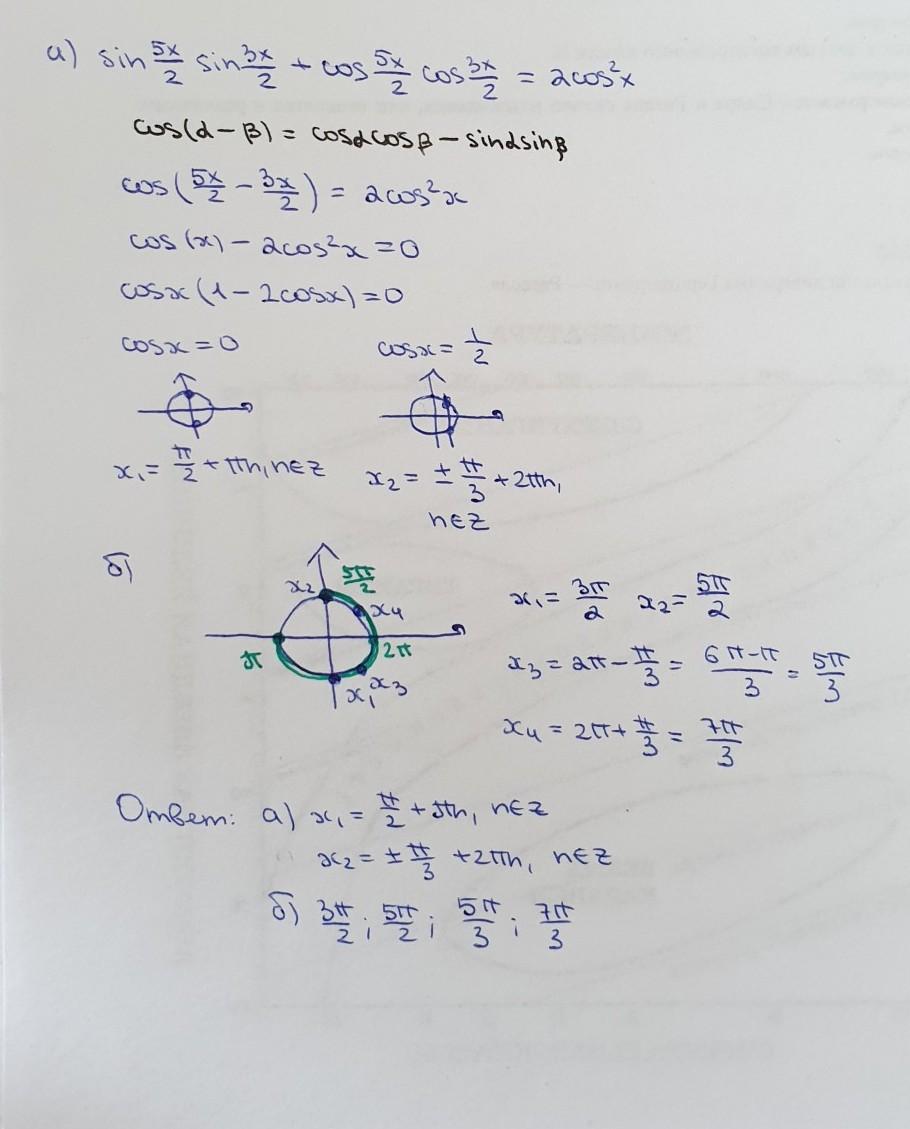 а) sin 5x/2 sin 3x/2 + cos 5x/2 cos 3x/2 = 2cos²x
cos(α − β) = cosαcosβ − sinαsinβ
cos(5x/2 − 3x/2) = 2cos²x
cos(x) − 2cos²x = 0
cosx(1 − 2cosx) = 0
cosx = 0 cosx = 1/2
x₁ = π/2 + πn, n∈Z x₂ = ± π/3 + 2πn,
n∈Z
б)
x₂ 5π/2
x₄
π 2π
x₁ x₃
x₁ = 3π/2 x₂ = 5π/2
x₃ = 2π − π/3 = 6π−π/3 = 5π/3
x₄ = 2π + π/3 = 7π/3
Ответ: а) x₁ = π/2 + πn, n∈Z
x₂ = ± π/3 + 2πn, n∈Z
б) 3π/2; 5π/2; 5π/3; 7π/3